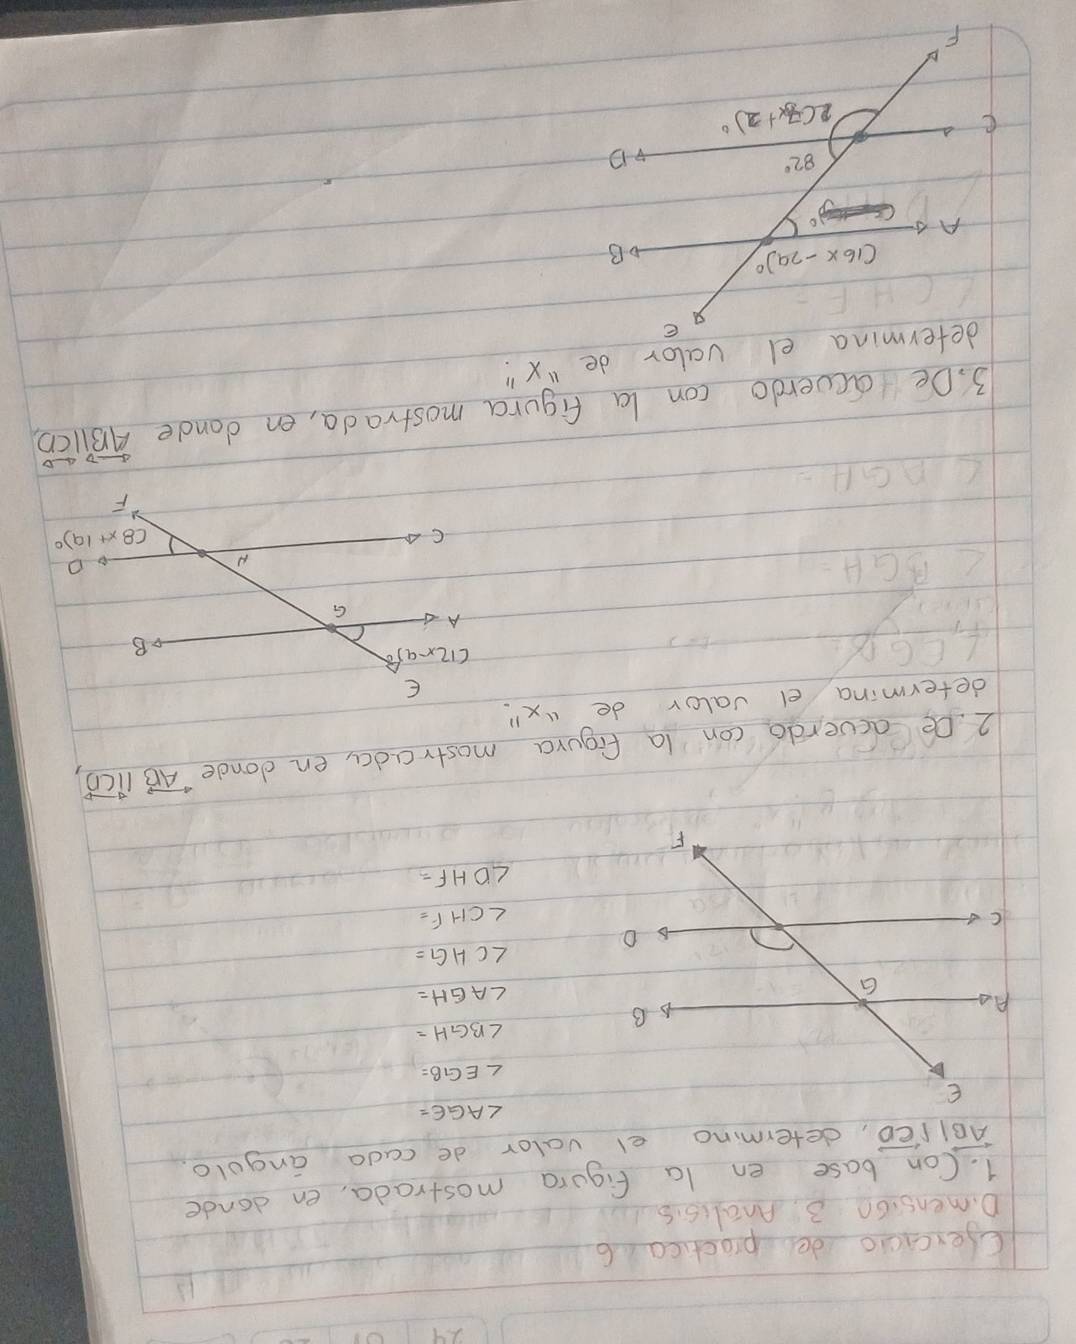 24
Ejercicio de practica 6
Dimensión 3. Análisis
1. Con base en la figura mostrada, en donde
AB||CD, determina el valor de cada ángulo.
E
A
G
B
C
D
F
∠AGE=
∠EGB=
∠BGH=
∠AGH=
∠CHG=
∠CHF=
∠DHF=
2. De acuerdo con la figura mostrada, en donde AB||CD,
determina el valor de "x".
E
(12x-9)°
A
G
B
C
H
D
(8x+19)°
F
3. De acuerdo con la figura mostrada, en donde AB||CD,
determina el valor de "x".
E
(16x-29)°
A
B
82°
C
D
F